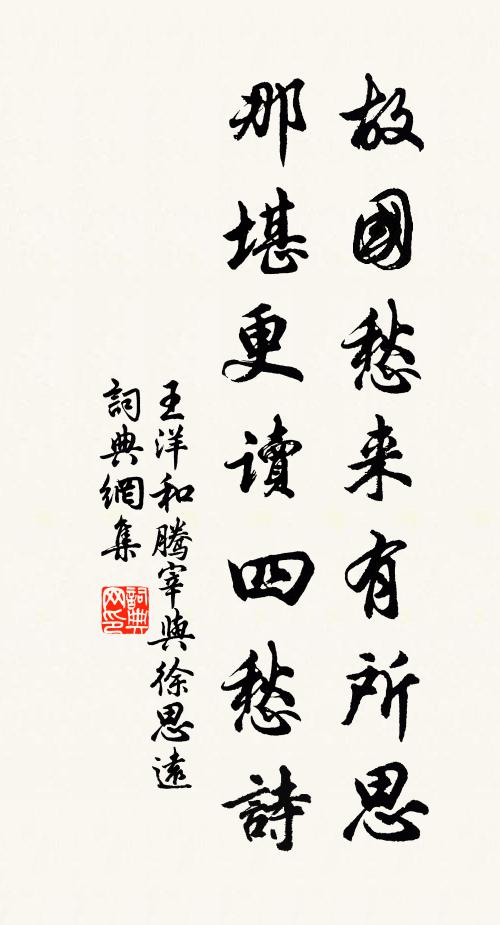 故國愁来有所思
那堪更讀四愁詩
王洋和騰宰與徐思遠
詞典網集
詞典网印